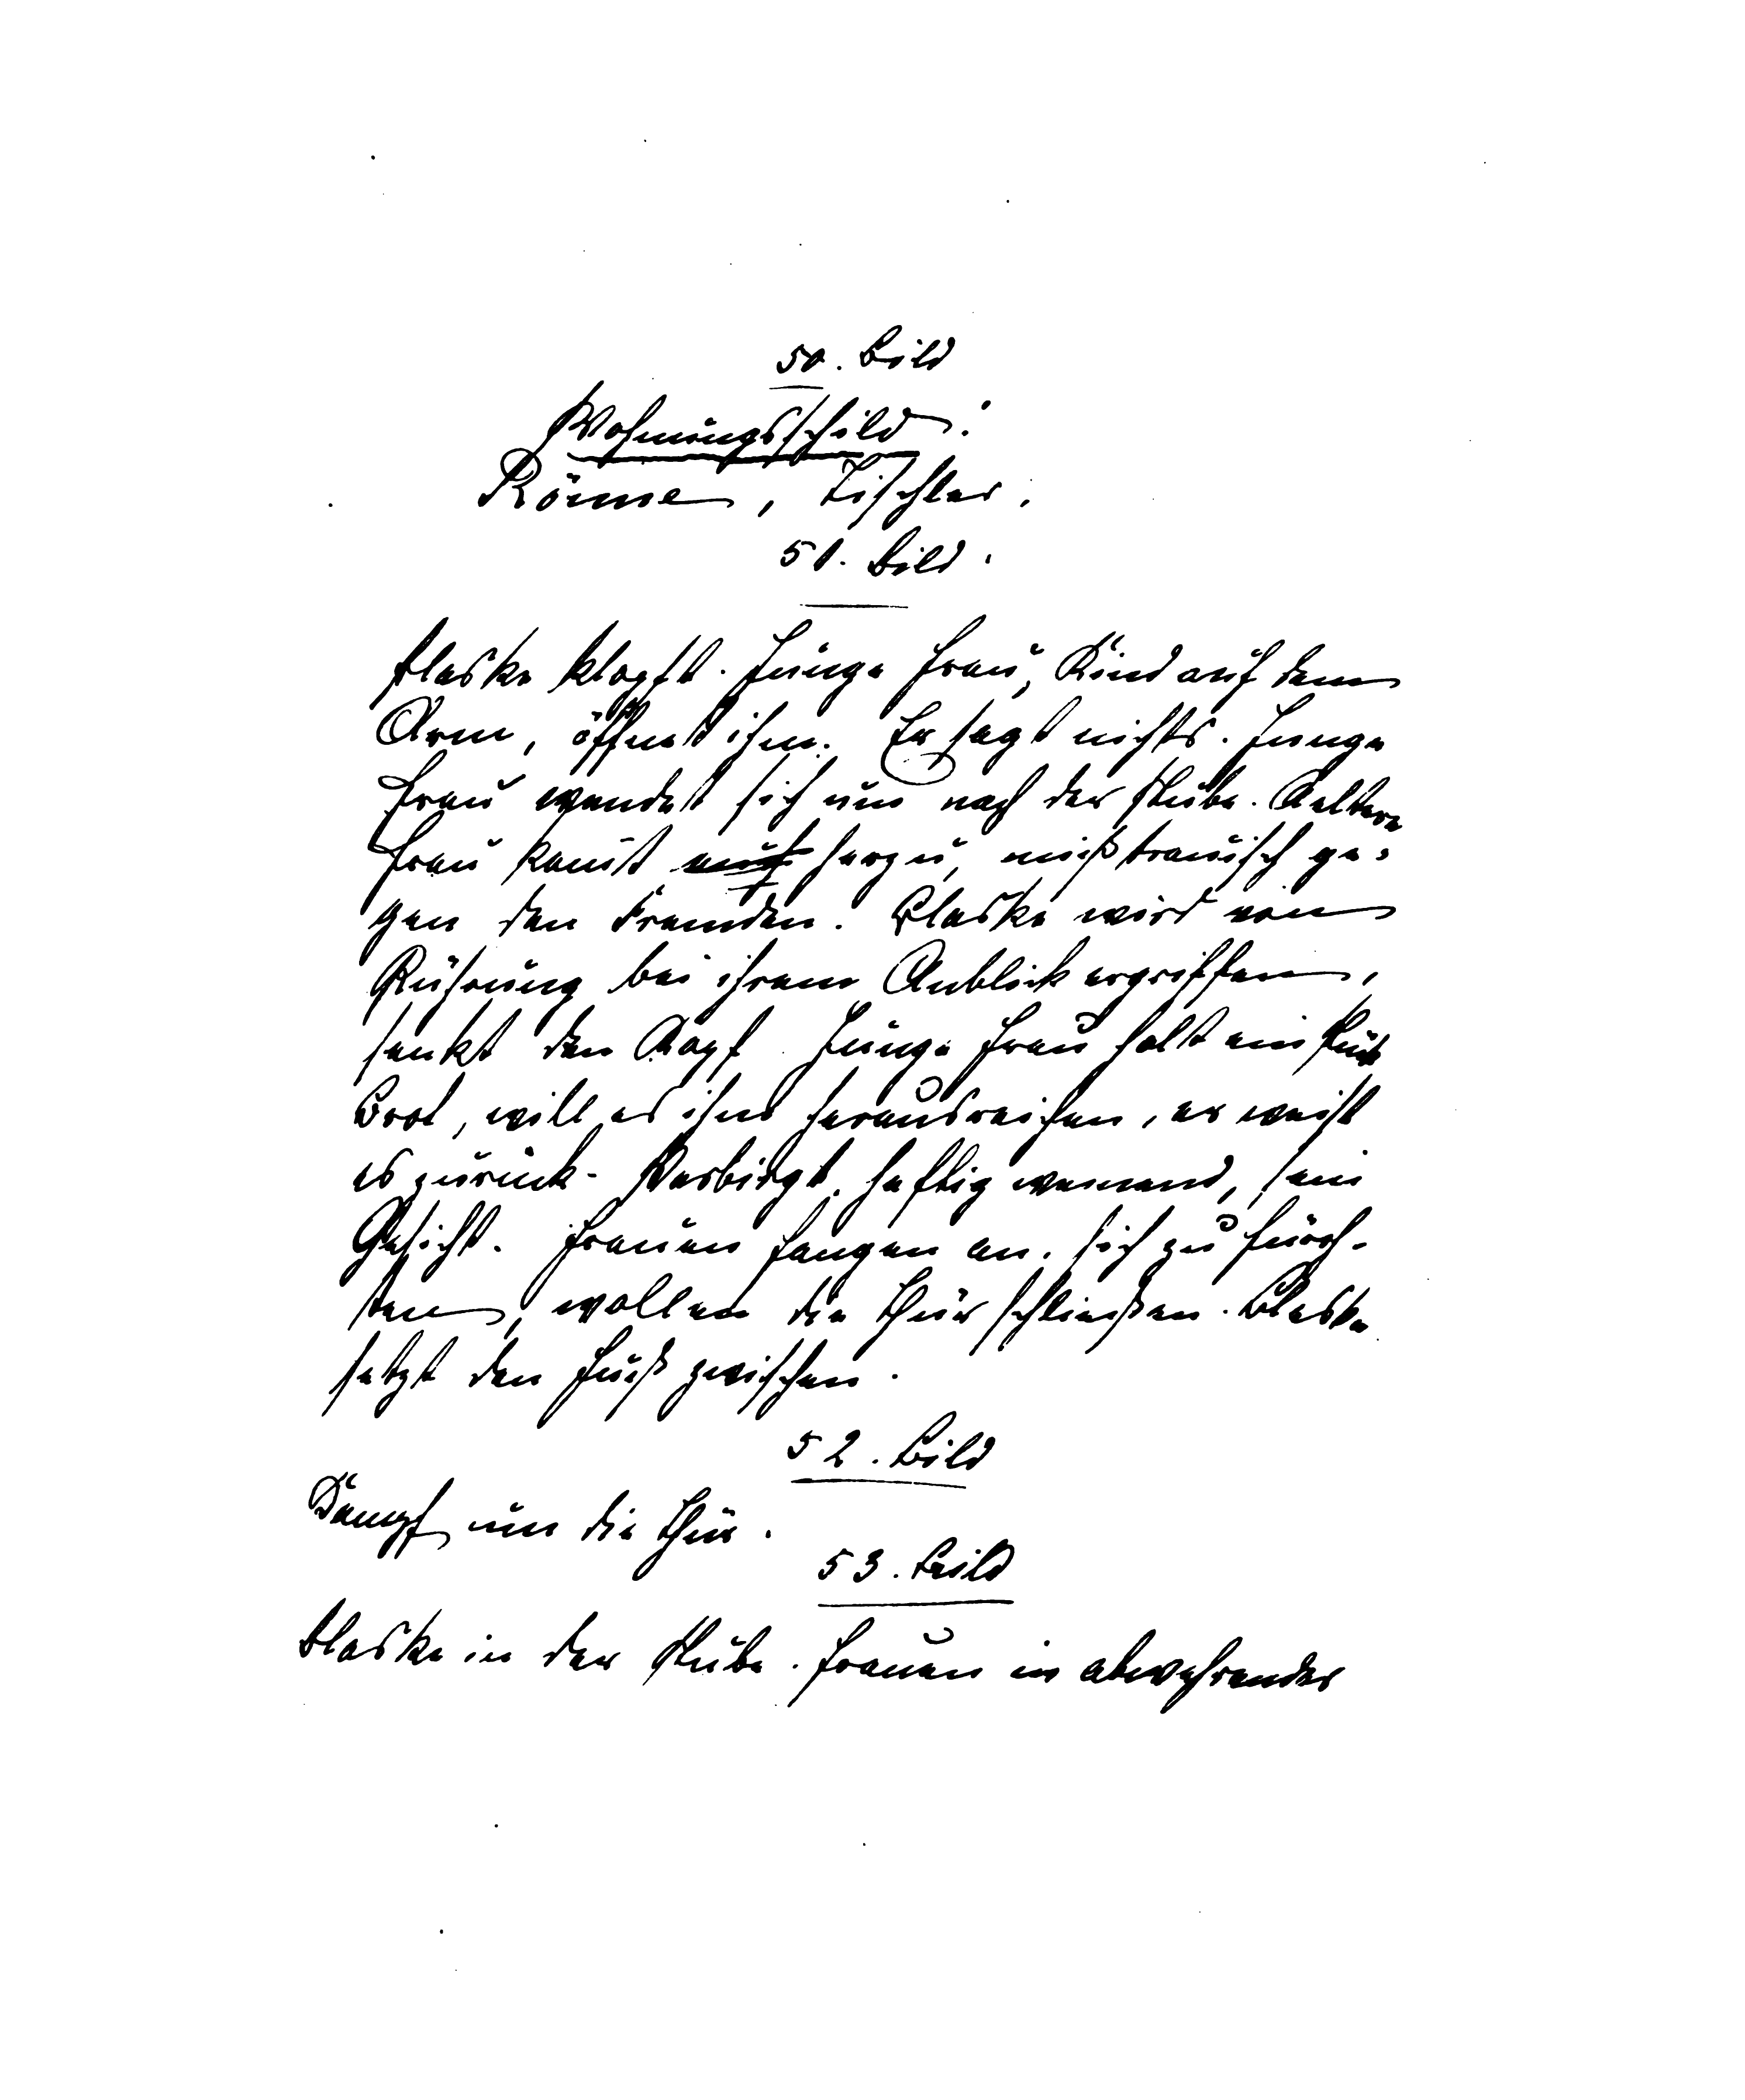 50. Bild
Wohnungsschild:
Römse, Tischler.
51. Bild.
Blaske klopft. Junge Frau, Kind auf dem
Arm, öffnet ihm. Er sagt nichts. Junge
Frau wendet sich um nach der Stube. Aeltere
Frau komt herzu, mißtrauisch ge-
gen den Fremden. Blaske wird von
Rührung bei ihrem Anblick ergriffen,
senkt den Kopf. Junge Frau holt ein Stück
Brot, will es ihm herausreichen, er weist
es zurück. Verbirgt, heftig weinend, sein
Gesicht. Frauen fangen an, sich zu fürch-
ten, wollen die Thür schließen. Blaske
setzt den Fuß zwischen.
52. Bild
Kampf um die Thür.
53. Bild
Blaske in der Stube. Frauen in abwehrender